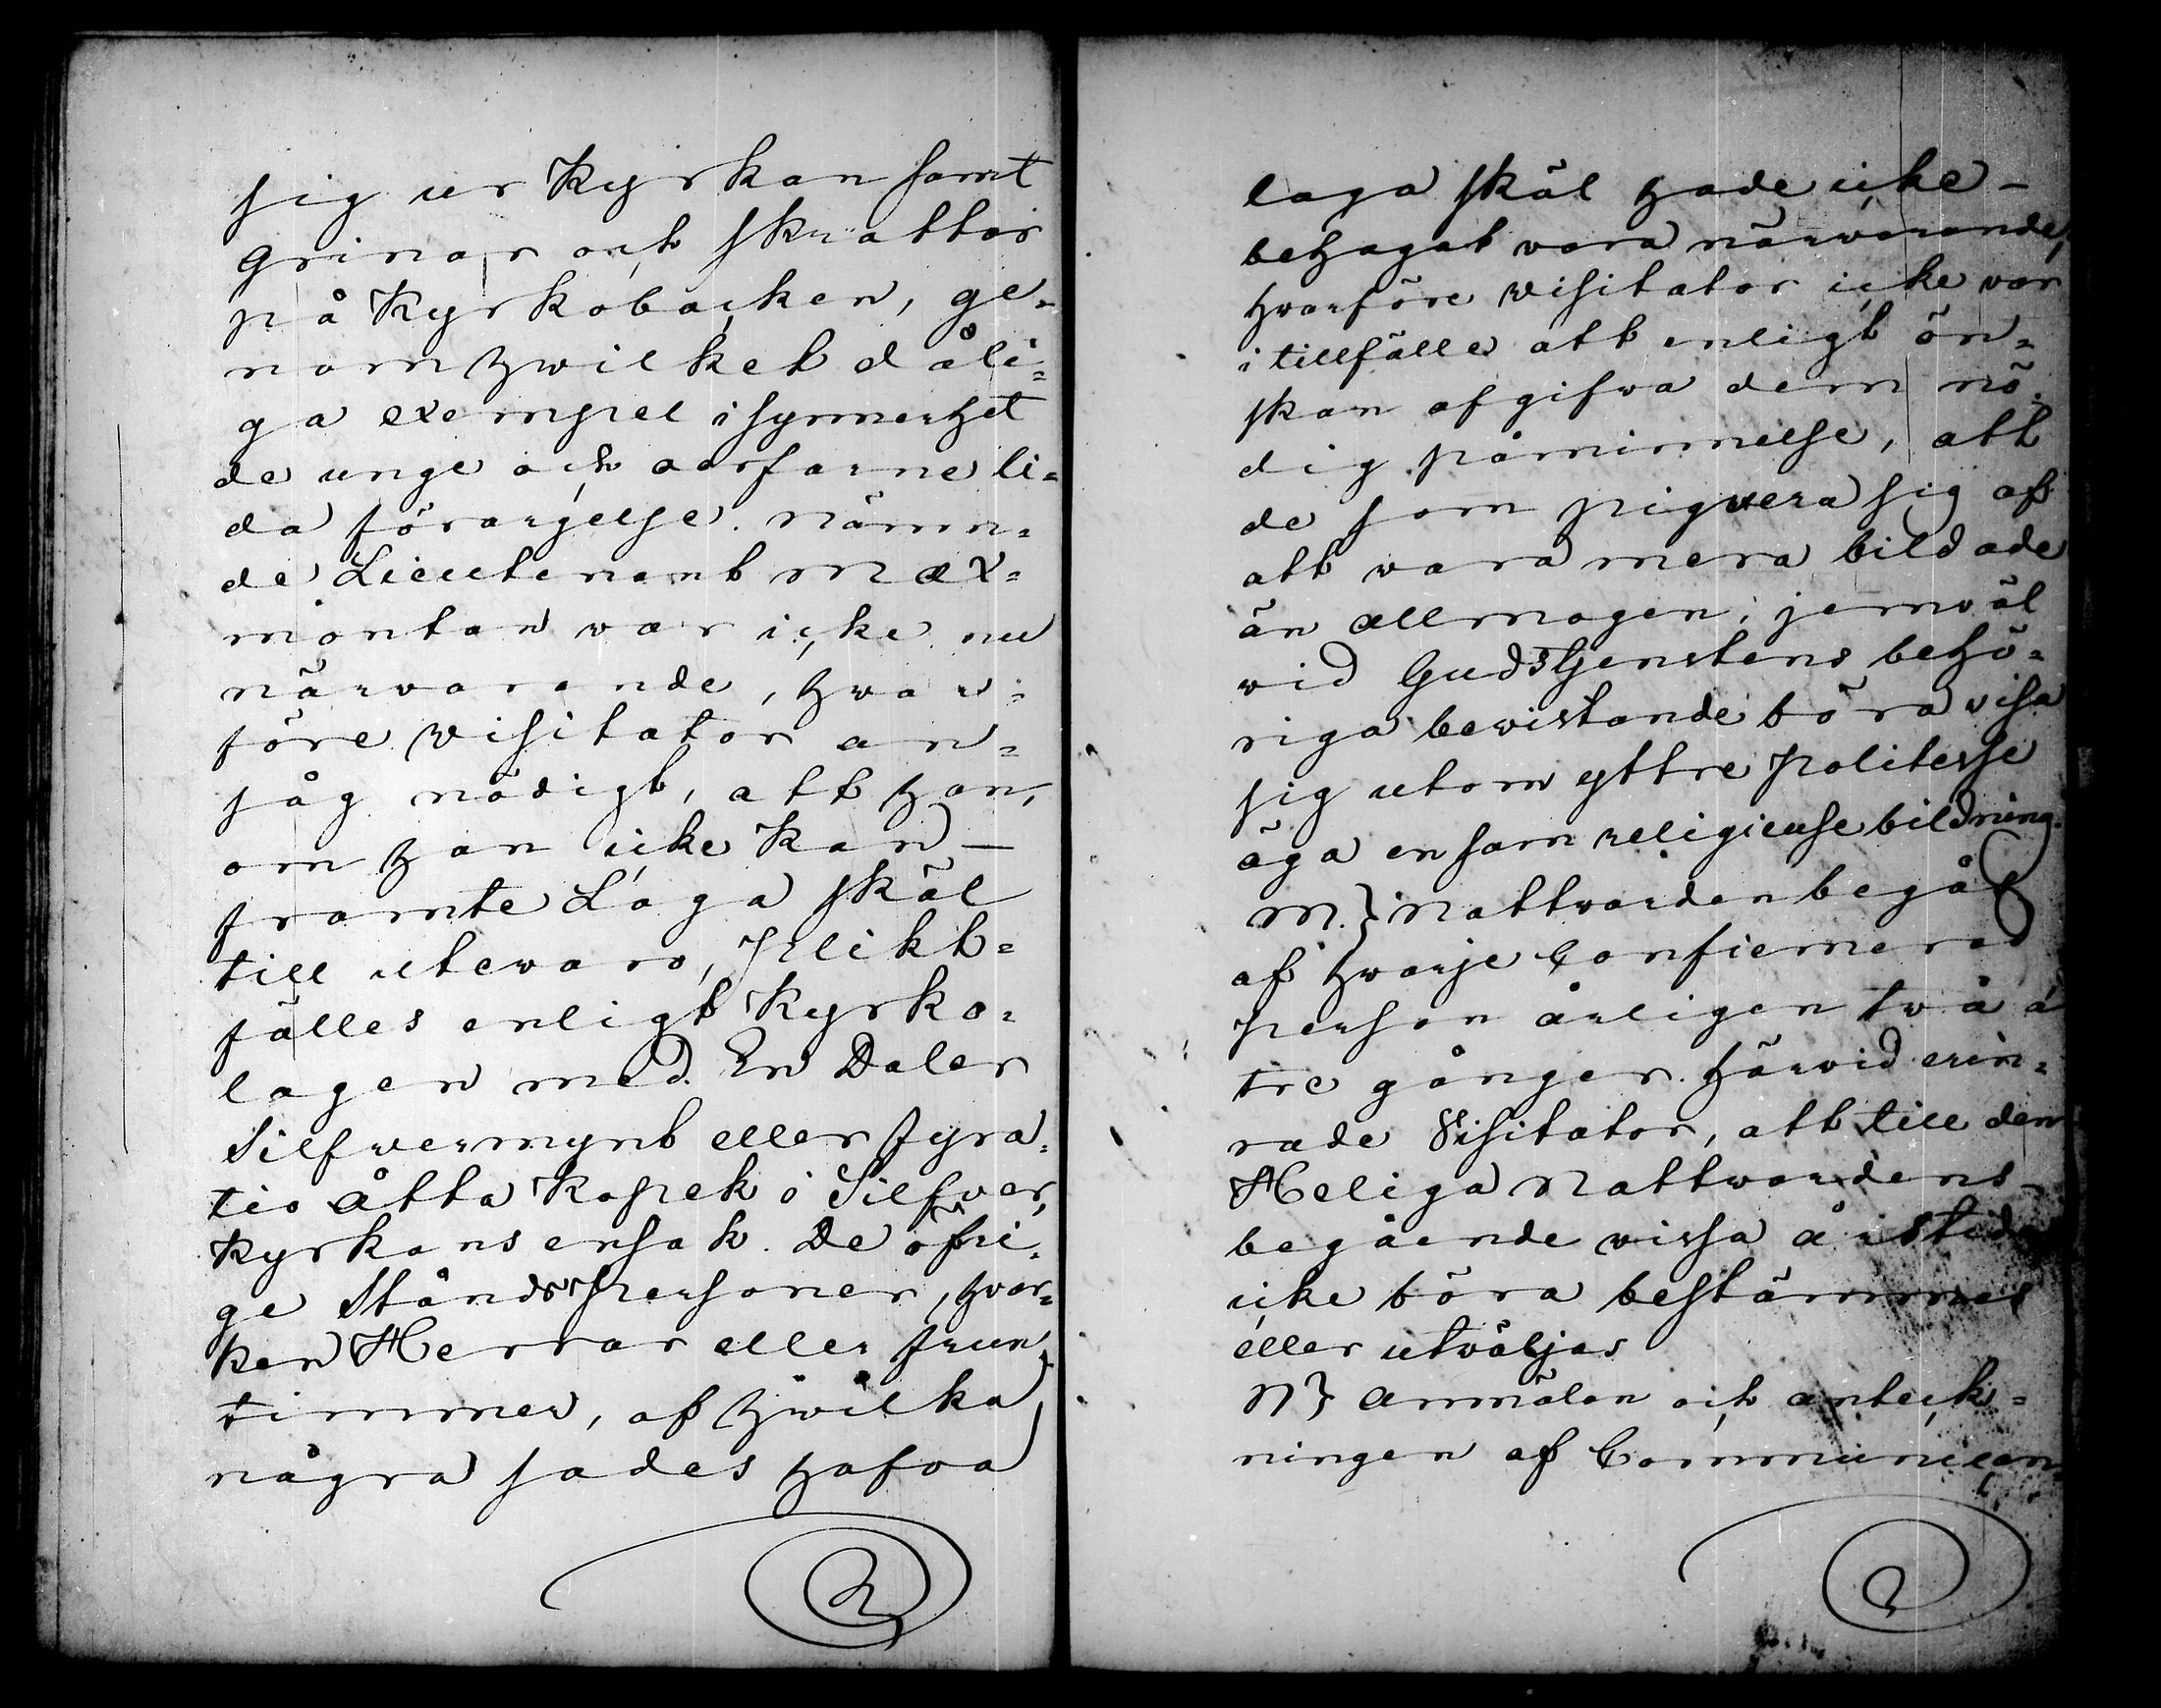 sig ur Kyrkan samt
grinar och skrattar
på Kyrkobacken, ge=
nom hwilket dåli=
ga exempel isynnerhet
de unge och oerfarne li=
da förargelse. Nämn=
de Lieutenant Max=
montan war icke nu
närwarande, hwar=
före Visitator an=
såg nödigt, att han,
om han icke kan
framte Laga skäl
till utewaro, plikt=
fälles enligt Kyrko=
lagen med En Daler
Silfwermynt eller fyra=
tio åtta Kopek i Silfwer,
Kyrkans ensak. De öfri=
ge Ståndspersoner, hwar=
ken Herrar eller frun=
timmer, af hwilka
några sades hafva
laga skäl hade icke
behagat vara närwarande,
hwarföre visitator icke var
i tillfälle att enligt ön=
skan afgifwa dem nö=
dig påminnelse, att
de som piqvera sig af
att vara mera bildade
än allmogen; jemväl
vid Gudstjenstens behö=
riga bewistande böra visa
sig utom yttre politesse
äga en sann religieuse bildning.
M.} Nattwarden begås
af hwarje Confirmerad
person årligen twå à
tre gånger. Härvid erin=
rade Visitator, att till den
Heliga Nattwardens
begående wissa årstider
icke böra bestämmas
eller utväljas
N} Anmälan och anteck=
ningen af Communican=